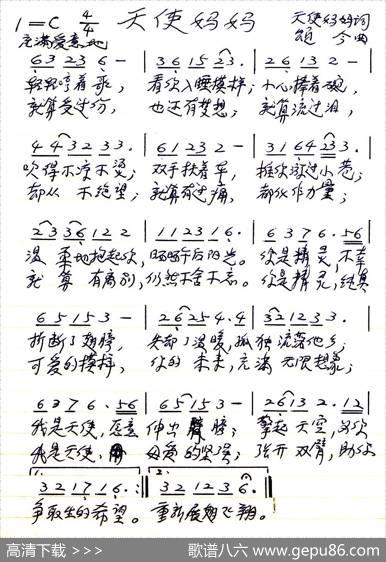 1=C 4/4 天使妈妈 天使妈妈词
充满爱意地 颂今曲
6 3 2 3 6 - | 3 6 1 5 2 3. | 2 6 1 3 2 - |
轻轻哼着歌， 看你入睡模样； 小心捧着碗，
就算受过伤， 也还有梦想； 就算流过泪，
4 4 3 2 3 3. | 6 1 2 3 2 - | 3 1 6 4 2 3 3. |
吹得不凉不烫； 双手扶着车， 推你游过小巷；
却从不绝望； 就算有过痛， 都化作力量；
2 3 3 6 1 2 2 | 1 1 2 3 1 6. | 6 3 7 6. 5 6 |
温柔地抱起你， 晒晒午后阳光。 你是精灵，不幸
就算有离别， 仍然不舍不忘。 你是精灵，
6 5 1 5 3 - | 2 6 2 5 4. 4 | 3 2 1 2 3 3. |
折断了翅膀， 失却了温暖，孤独流落他乡；
可爱的模样， 你的未来，充满无限想象；
6 3 7 6. 5 6 | 6 5 1 5 3 - | 2 6 1 3 2. 1 2 |
我是天使，愿意 伸出臂膀； 擎起天空，为你
我是天使，用 母爱的坚强； 张开双臂，助你
1. 2.
3 2 1 7 1 6. :| 3 2 1 2 3 6. ‖
争取生的希望。 重新展翅飞翔。
高清下载 >>> 歌谱八六 www.gepu86.com